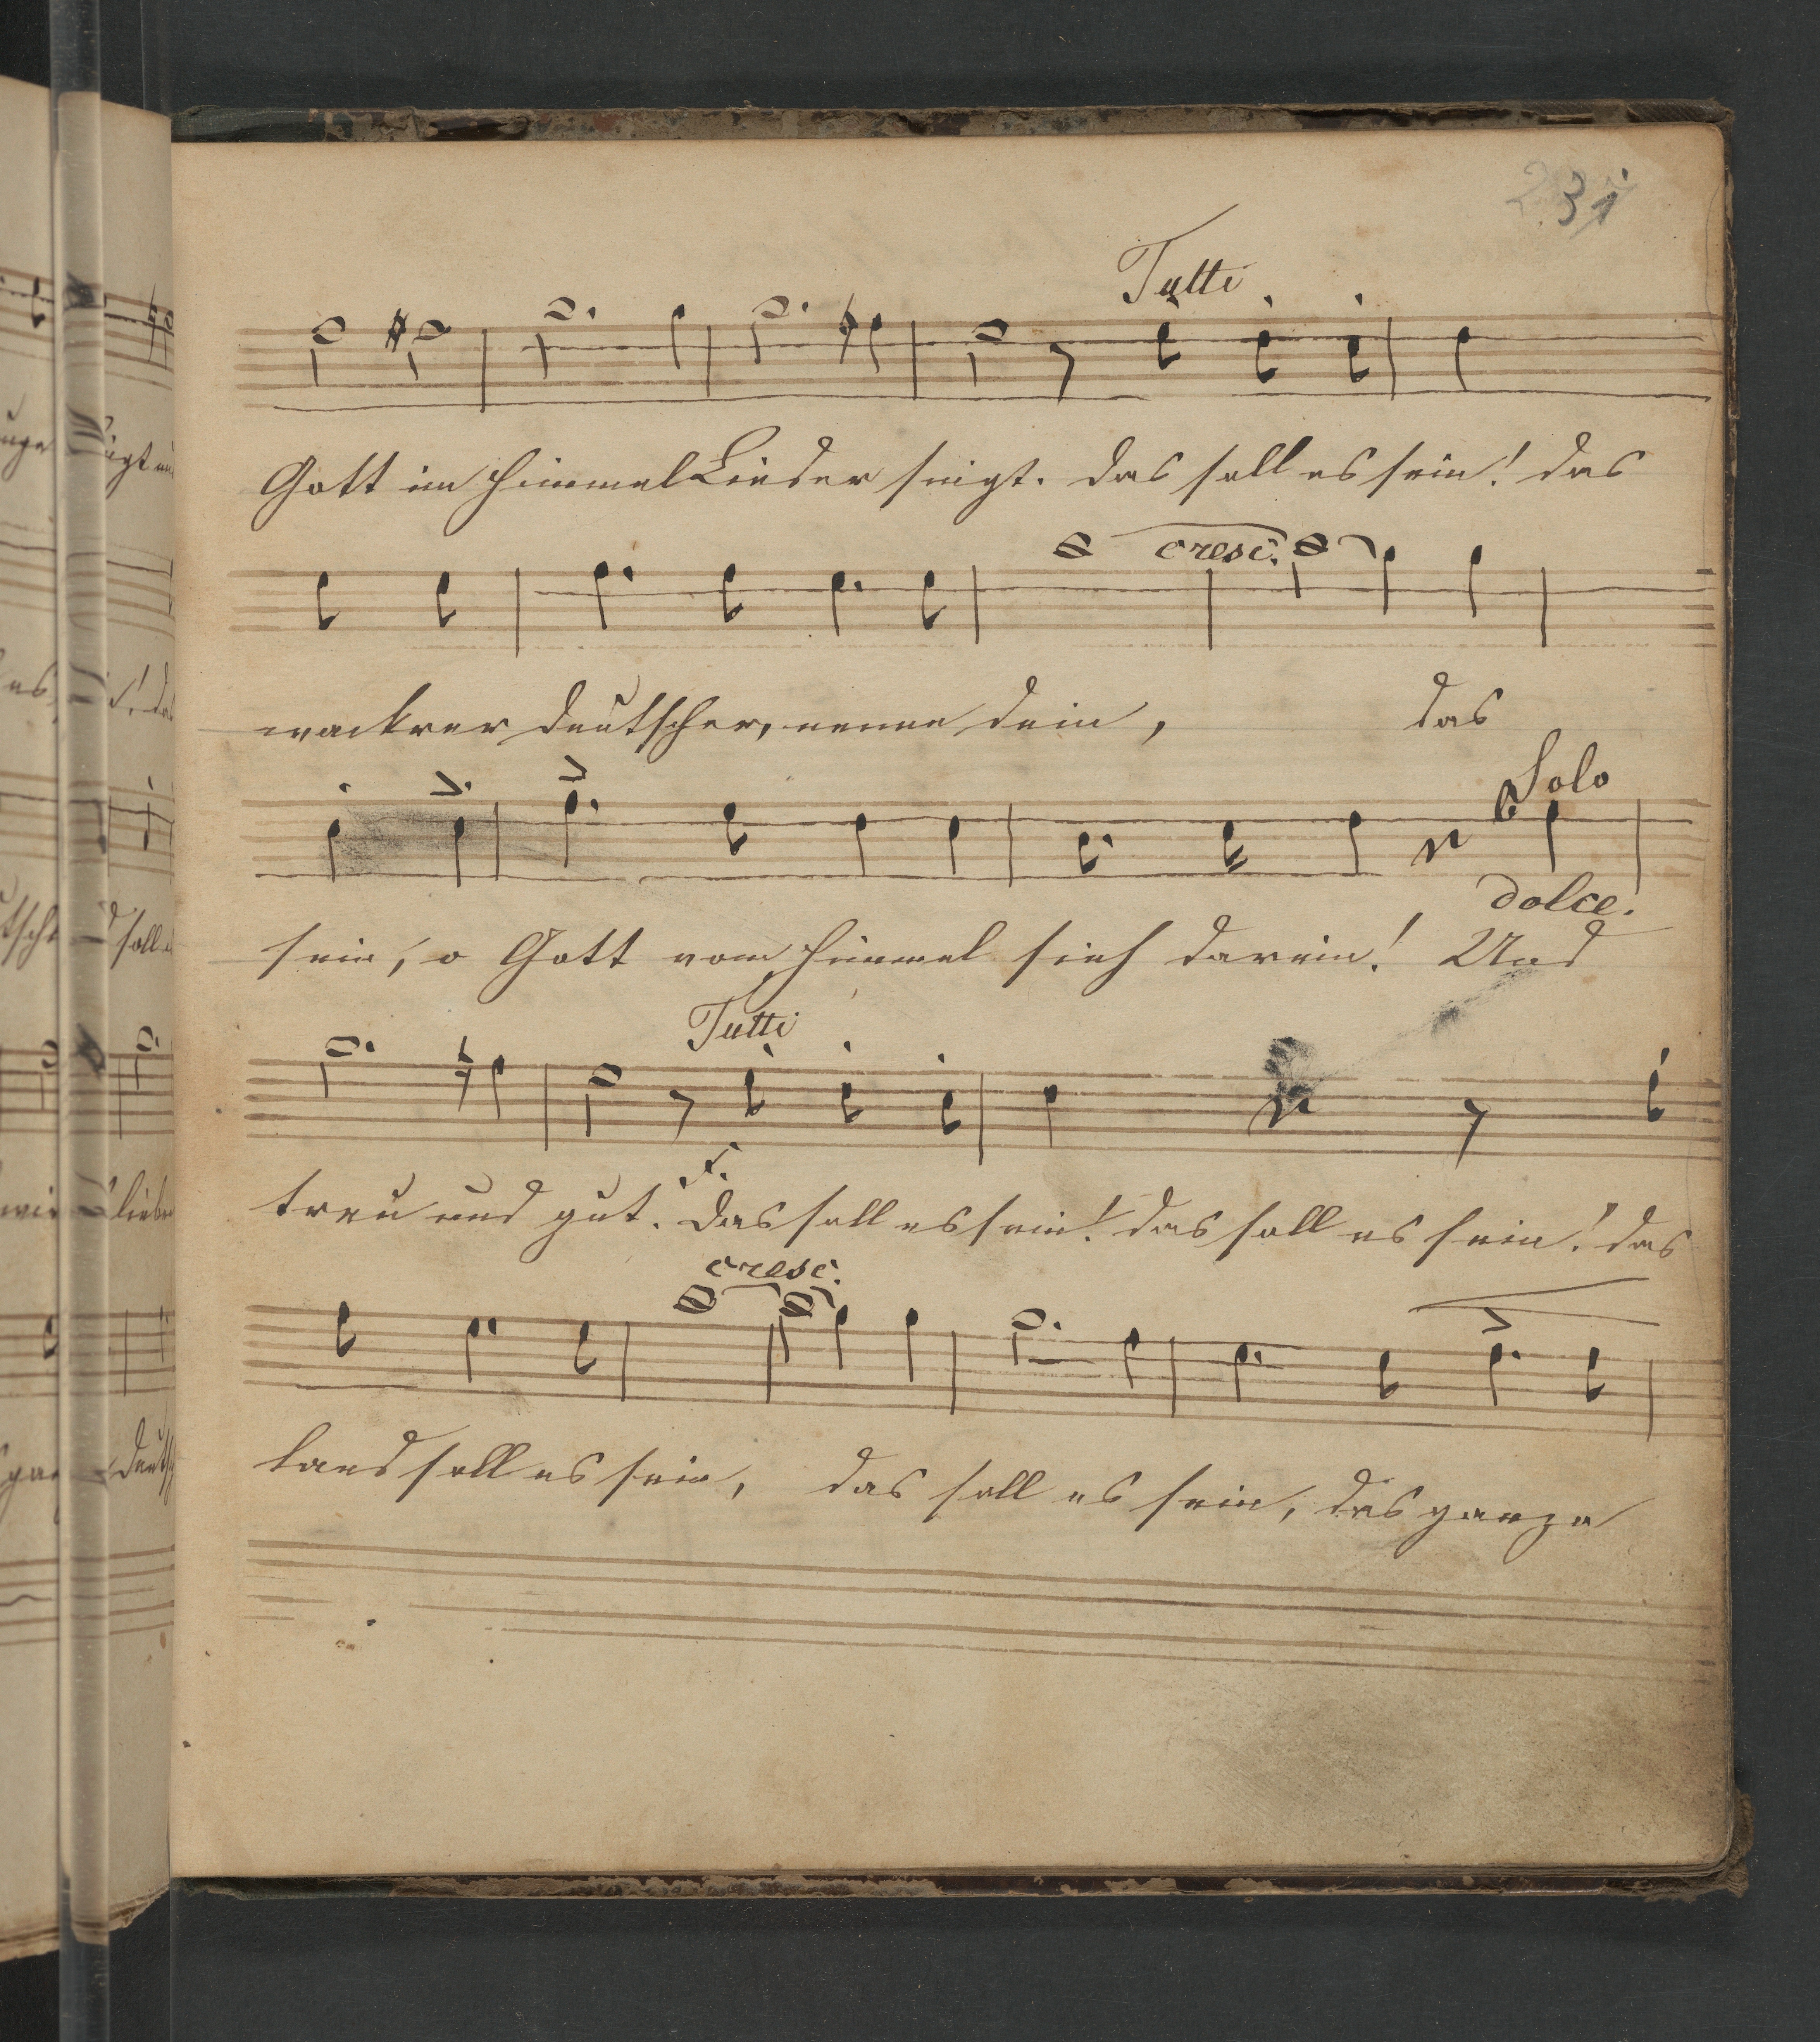 31
Tutti
Gott im Himmel Lieder singt. das soll es sein! das
cresc.
wackrer deutscher, nenne dein, das
Solo
dolce.
sein, o Gott vom Himmel sieh darein! Und
Tutti
f.
treu und gut. das soll es sein! das soll es sein! das
cresc.
land soll es sein, das soll es sein, das ganze